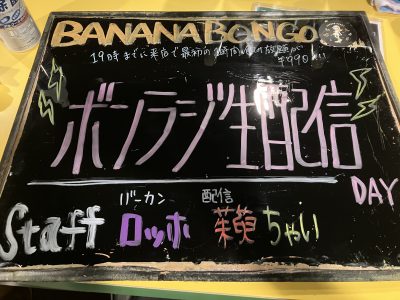 BANANA BONGO
19時までに来店で最初の1時間飲み放題が
¥990
ボンラジ生配信
DAY
バーカン 配信
Staff ロッホ 茱萸 ちゃい